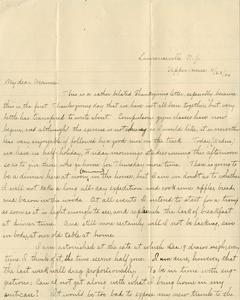 Lawrenceville N.J.
Upper House 11/23/04
My dear Mamma:-
This is a rather belated Thanksgiving letter, especially because
this is the first Thanksgiving day that we have not all been together, but very
little has transpired to write about. Compulsory gym classes have now
begun, and although the exercise is not as as I would like, it is never-the-
less very enjoyable if followed by a good run on the track. Today, Wednes.,
we have a half-holiday, Friday mornings studies some this afternoon
so as to give those who go home for Thursday more time. There is going to
be a dinner here at noon, in the house, but I am in doubt as to whether
I will not take a long all-day expedition and cook some apples bread,
and bacon in the woods. At all events I intend to start for a tramp
as soon as it is light enough to see, and the lack of breakfast
at dinner time. And still more certainly will I not be lacking, even
in body, at our table at home.
I am astonished at the rate at which day draws nigh, even
time I think of it the time seems half gone. I am sure, however, that
the last week will drag proportionally. To be in time with sug-
gestions: Can I not get along with what I bring home in my
suitcase? It would be too bad to expose any near trunk to the